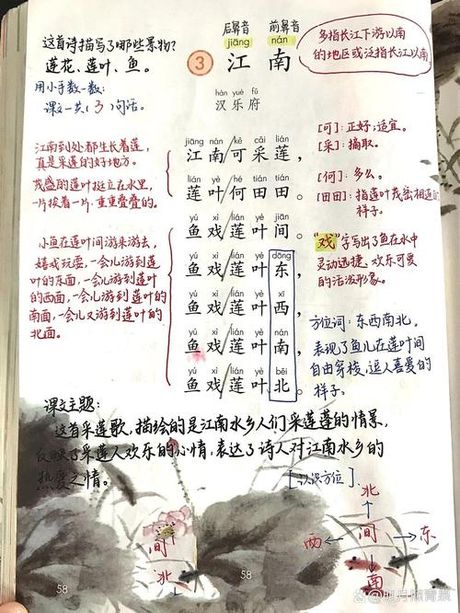 这首诗描写了哪些景物？
莲花、莲叶、鱼。
用小手数一数：
课文一共（3）句话。
后鼻音 前鼻音
jiāng nán
3 江南
hàn yuè fǔ
汉乐府
多指长江下游以南
的地区或泛指长江以南
江南到处都生长着莲，
真是采莲的好地方。
茂盛的莲叶挺立在水里，
一片挨着一片，重重叠叠的。
小鱼在莲叶间游来游去，
嬉戏玩耍，一会儿游到莲
叶的东面，一会儿游到莲叶
的西面，一会儿游到莲叶的
南面，一会儿又游到莲叶的
北面。
jiāng nán kě cǎi lián
江南/可采莲，
lián yè hé tián tián
莲叶/何田田。
yú xì lián yè jiān
鱼戏/莲叶间。
yú xì lián yè dōng
鱼戏/莲叶东，
yú xì lián yè xī
鱼戏/莲叶西，
yú xì lián yè nán
鱼戏/莲叶南，
yú xì lián yè běi
鱼戏/莲叶北。
[可]：正好；适宜。
[采]：摘取。
[何]：多么。
[田田]：指莲叶茂密相连的
样子。
“戏”字写出了鱼在水中
灵动迅捷、欢乐可爱
的活泼形象。
方位词：东西南北，
表现了鱼儿在莲叶间
自由穿梭，逗人喜爱的
样子。
课文主题：
这首采莲歌，描绘的是江南水乡人们采莲蓬的情景，
反映了采莲人欢乐的心情，表达了诗人对江南水乡的
热爱之情。
[认识方位]
北
西 间 东
南
间
北
58
58